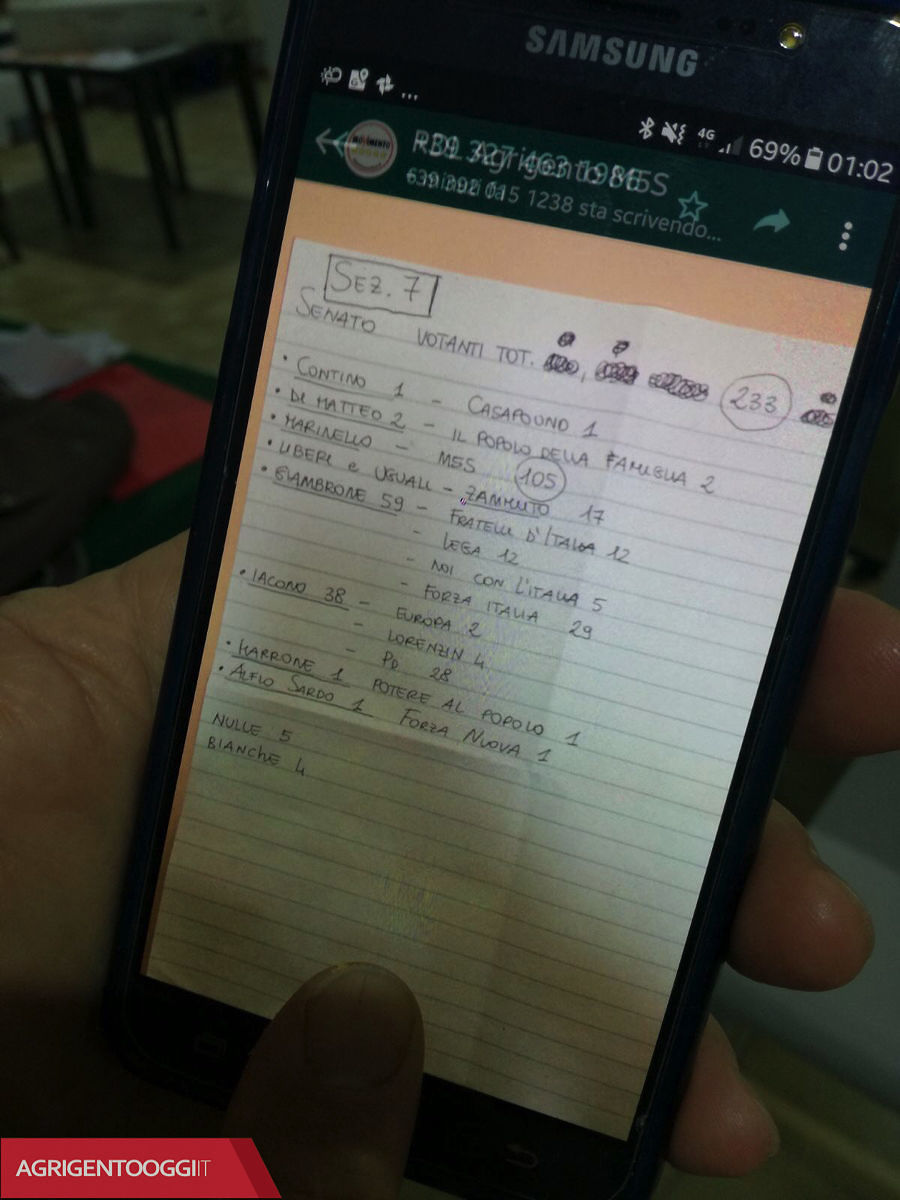 SAMSUNG
4G 69% 01:02
sta scrivendo...
SEZ. 7
SENATO VOTANTI TOT. 233
• CONTINO 1 - CASAPOUND 1
• DI MATTEO 2 - IL POPOLO DELLA FAMIGLIA 2
• MARINELLO - M5S 105
• LIBERI e UGUALI - ZAMMUTO 17
• GIAMBRONE 59 - FRATELLI D'ITALIA 12
- LEGA 12
- NOI CON L'ITALIA 5
- FORZA ITALIA 29
• IACONO 38 - EUROPA 2
- LORENZIN 4
- PD 28
• MARRONE 1 POTERE AL POPOLO 1
• ALFIO SARDO 1 FORZA NUOVA 1
NULLE 5
BIANCHE 4
AGRIGENTOOGGIIT